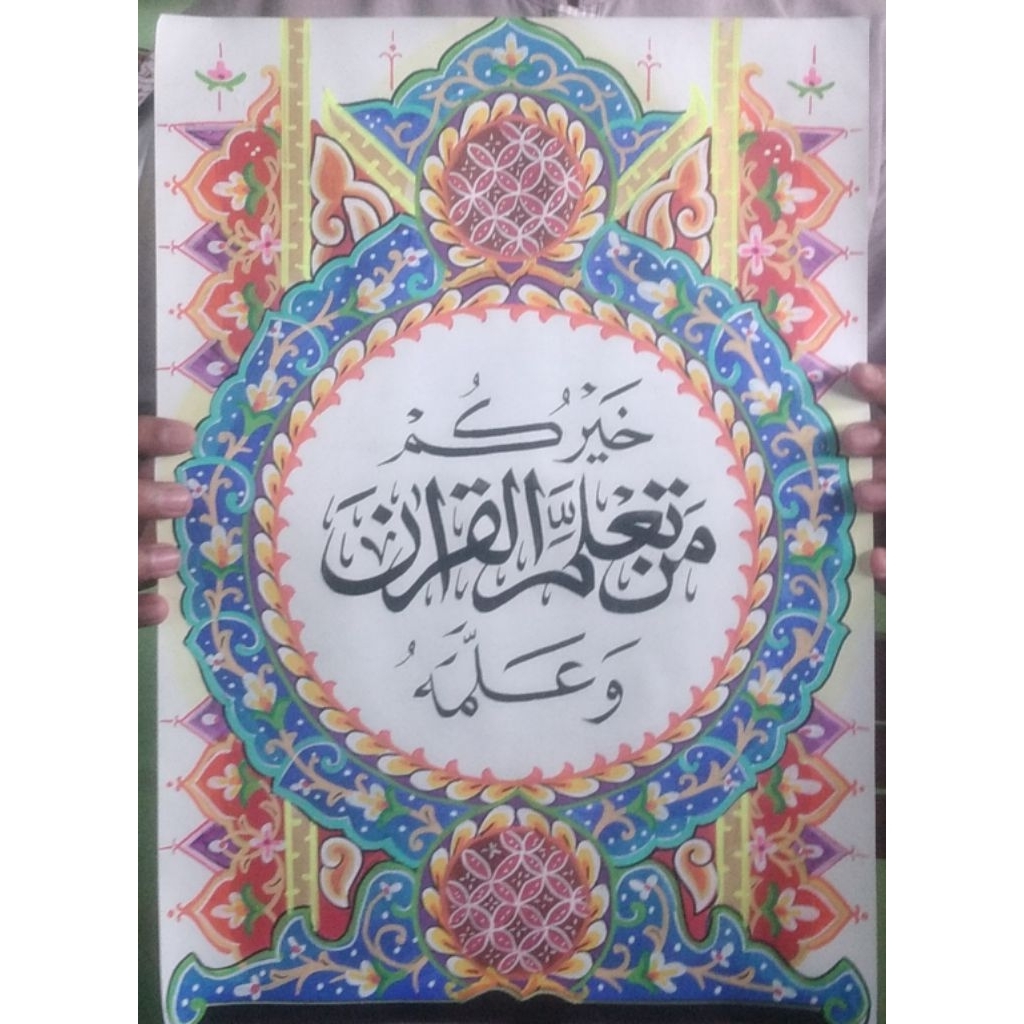 خَيْرُكُمْ
مَنْ تَعَلَّمَ القُرْانَ
وَعَلَّمَهُ